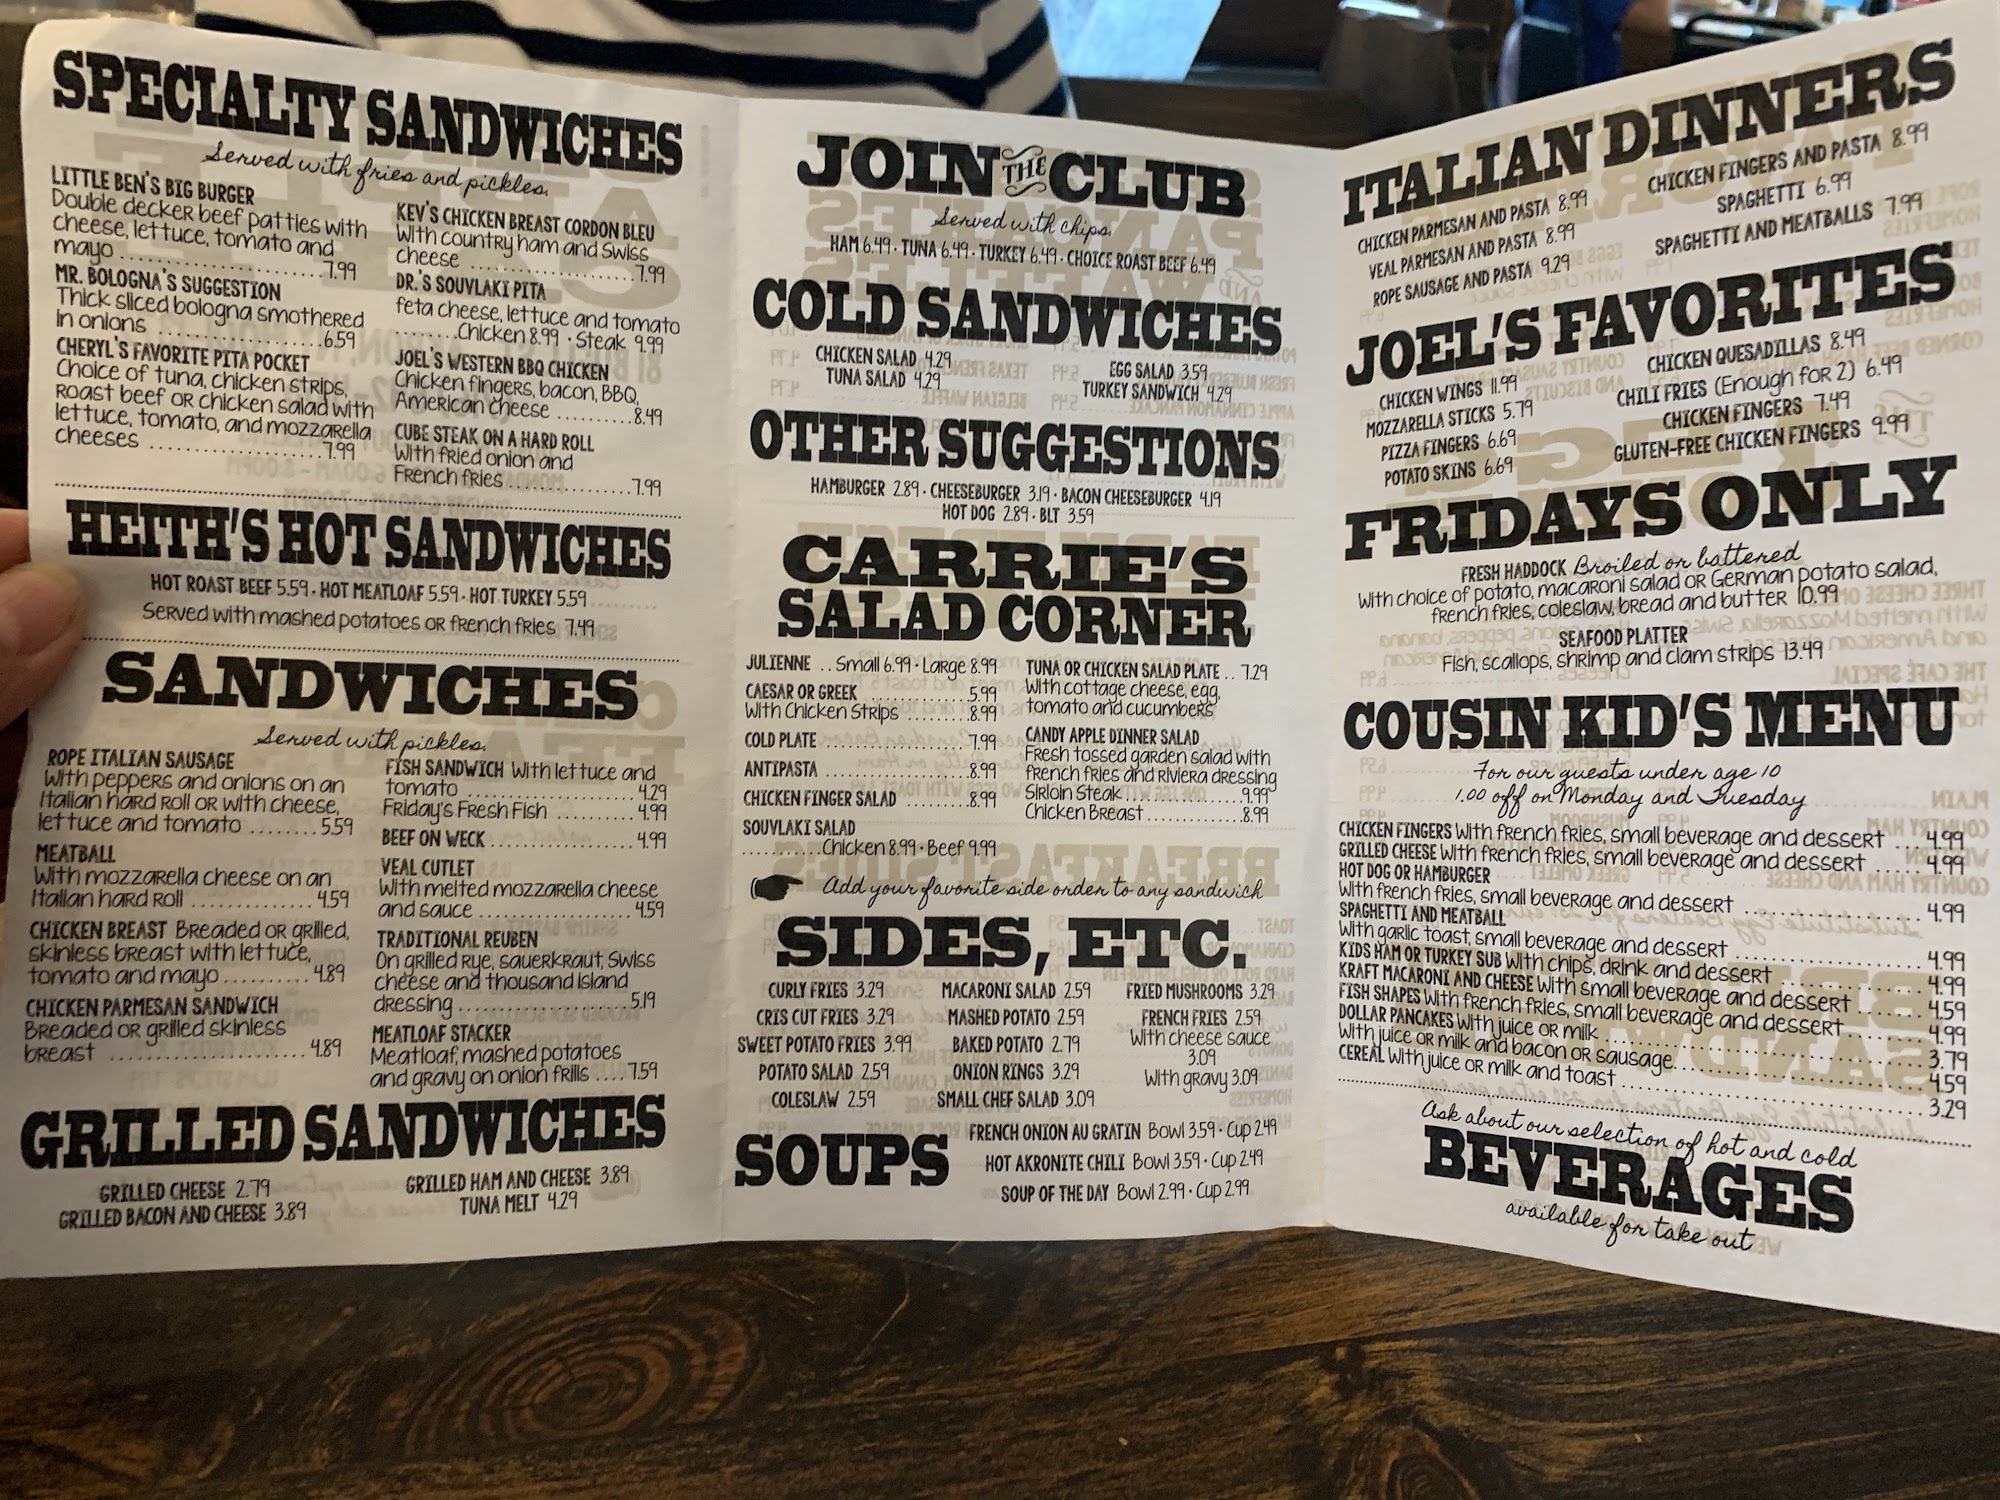 SPECIALTY SANDWICHES
Served with fries and pickles.
LITTLE BEN'S BIG BURGER
Double decker beef patties with
cheese, lettuce, tomato and
mayo ........................ 7.99
MR. BOLOGNA'S SUGGESTION
Thick sliced bologna smothered
in onions ........................ 6.59
CHERYL'S FAVORITE PITA POCKET
Choice of tuna, chicken strips,
roast beef or chicken salad with
lettuce, tomato, and mozzarella
cheeses ........................ 7.99
KEV'S CHICKEN BREAST CORDON BLEU
With country ham and Swiss
cheese ........................ 7.99
DR.'S SOUVLAKI PITA
feta cheese, lettuce and tomato
........Chicken 8.99 · Steak 9.99
JOEL'S WESTERN BBQ CHICKEN
Chicken fingers, bacon, BBQ,
American cheese ........... 8.49
CUBE STEAK ON A HARD ROLL
With fried onion and
French fries ................. 7.99
HEITH'S HOT SANDWICHES
HOT ROAST BEEF 5.59 · HOT MEATLOAF 5.59 · HOT TURKEY 5.59
Served with mashed potatoes or french fries 7.49
SANDWICHES
Served with pickles.
ROPE ITALIAN SAUSAGE
With peppers and onions on an
Italian hard roll or with cheese,
lettuce and tomato ........ 5.59
MEATBALL
With mozzarella cheese on an
Italian hard roll ............... 4.59
CHICKEN BREAST Breaded or grilled,
skinless breast with lettuce,
tomato and mayo ........... 4.89
CHICKEN PARMESAN SANDWICH
Breaded or grilled skinless
breast ........................ 4.89
FISH SANDWICH With lettuce and
tomato ........................ 4.29
Friday's Fresh Fish .......... 4.99
BEEF ON WECK ................... 4.99
VEAL CUTLET
With melted mozzarella cheese
and sauce ................... 4.59
TRADITIONAL REUBEN
On grilled rye, sauerkraut, Swiss
cheese and thousand island
dressing ..................... 5.19
MEATLOAF STACKER
Meatloaf, mashed potatoes
and gravy on onion frills .... 7.59
GRILLED SANDWICHES
GRILLED CHEESE 2.79
GRILLED BACON AND CHEESE 3.89
GRILLED HAM AND CHEESE 3.89
TUNA MELT 4.29
JOIN THE CLUB
Served with chips.
HAM 6.49 · TUNA 6.49 · TURKEY 6.49 · CHOICE ROAST BEEF 6.49
COLD SANDWICHES
CHICKEN SALAD 4.29
TUNA SALAD 4.29
EGG SALAD 3.59
TURKEY SANDWICH 4.29
OTHER SUGGESTIONS
HAMBURGER 2.89 · CHEESEBURGER 3.19 · BACON CHEESEBURGER 4.19
HOT DOG 2.89 · BLT 3.59
CARRIE'S
SALAD CORNER
JULIENNE .. Small 6.99 · Large 8.99
CAESAR OR GREEK ............ 5.99
With Chicken Strips ........ 8.99
COLD PLATE ................... 7.99
ANTIPASTA ................... 8.99
CHICKEN FINGER SALAD ........ 8.99
SOUVLAKI SALAD
...........Chicken 8.99 · Beef 9.99
TUNA OR CHICKEN SALAD PLATE .. 7.29
With cottage cheese, egg,
tomato and cucumbers
CANDY APPLE DINNER SALAD
Fresh tossed garden salad with
french fries and Riviera dressing
Sirloin Steak ............... 9.99
Chicken Breast ............. 8.99
Add your favorite side order to any sandwich
SIDES, ETC.
CURLY FRIES 3.29
CRIS CUT FRIES 3.29
SWEET POTATO FRIES 3.99
POTATO SALAD 2.59
COLESLAW 2.59
MACARONI SALAD 2.59
MASHED POTATO 2.59
BAKED POTATO 2.79
ONION RINGS 3.29
SMALL CHEF SALAD 3.09
FRIED MUSHROOMS 3.29
FRENCH FRIES 2.59
With cheese sauce
3.09
With gravy 3.09
SOUPS
FRENCH ONION AU GRATIN Bowl 3.59 · Cup 2.49
HOT AKRONITE CHILI Bowl 3.59 · Cup 2.49
SOUP OF THE DAY Bowl 2.99 · Cup 2.99
ITALIAN DINNERS
CHICKEN PARMESAN AND PASTA 8.99
VEAL PARMESAN AND PASTA 8.99
ROPE SAUSAGE AND PASTA 9.29
CHICKEN FINGERS AND PASTA 8.99
SPAGHETTI 6.99
SPAGHETTI AND MEATBALLS 7.99
JOEL'S FAVORITES
CHICKEN WINGS 11.99
MOZZARELLA STICKS 5.79
PIZZA FINGERS 6.69
POTATO SKINS 6.69
CHICKEN QUESADILLAS 8.49
CHILI FRIES (Enough for 2) 6.49
CHICKEN FINGERS 7.49
GLUTEN-FREE CHICKEN FINGERS 9.99
FRIDAYS ONLY
FRESH HADDOCK Broiled or battered
With choice of potato, macaroni salad or German potato salad,
french fries, coleslaw, bread and butter 10.99
SEAFOOD PLATTER
Fish, scallops, shrimp and clam strips 13.49
COUSIN KID'S MENU
For our guests under age 10
1.00 off on Monday and Tuesday
CHICKEN FINGERS With french fries, small beverage and dessert .... 4.99
GRILLED CHEESE With french fries, small beverage and dessert ..... 4.99
HOT DOG OR HAMBURGER
With french fries, small beverage and dessert ................ 4.99
SPAGHETTI AND MEATBALL
With garlic toast, small beverage and dessert ................ 4.99
KIDS HAM OR TURKEY SUB With chips, drink and dessert ............ 4.99
KRAFT MACARONI AND CHEESE With small beverage and dessert ...... 4.59
FISH SHAPES With french fries, small beverage and dessert ....... 4.99
DOLLAR PANCAKES With juice or milk ................ 3.79
With juice or milk and bacon or sausage ................ 4.59
CEREAL With juice or milk and toast ................ 3.29
Ask about our selection of hot and cold
BEVERAGES
available for take out